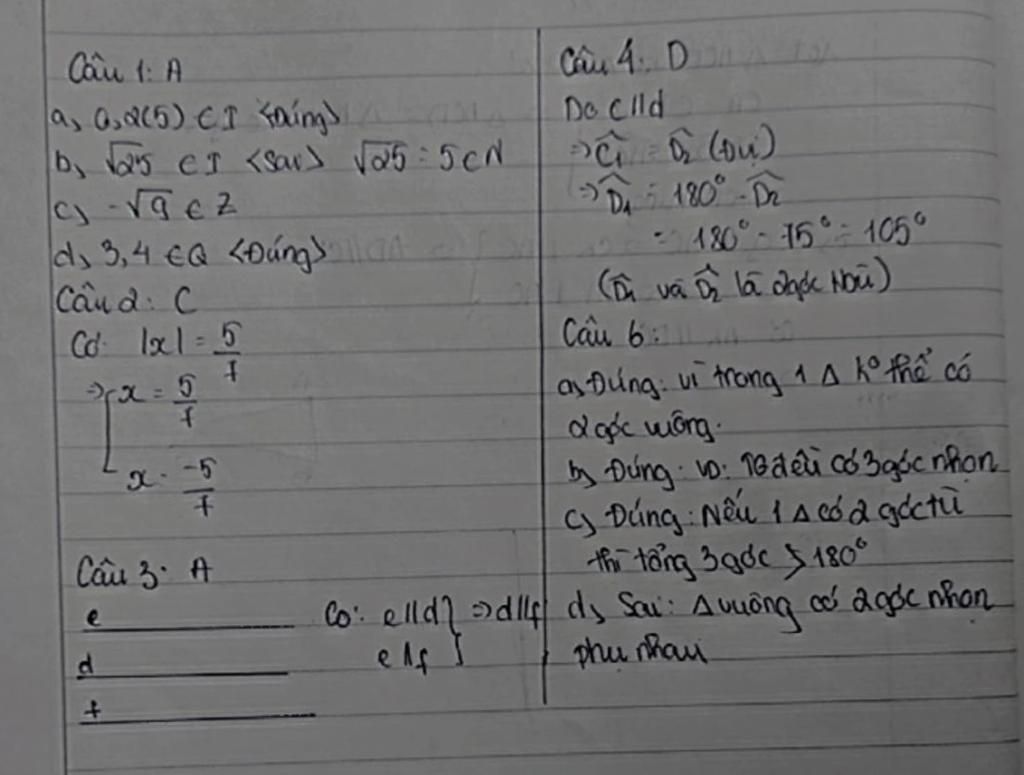 Câu 1: A
a, 0,2(5) ∈ I <Đúng>
b, √25 ∈ I <Sai> √25 = 5 ∈ N
c, -√9 ∈ Z
d, 3,4 ∈ Q <Đúng>
Câu 2: C
Có: |x| = 5/7
⇒ [ x = 5/7
x = -5/7
Câu 3: A
e
d
f
Có: e//d } ⇒ d//f
e//f }
Câu 4: D
Do c//d
⇒ Ĉ1 = D̂2 (Đvị)
⇒ D̂1 = 180° - D̂2
= 180° - 75° = 105°
(D̂1 và D̂2 là 2góc kbù)
Câu 6:
a, Đúng: vì trong 1 Δ k° thể có
2 góc vuông.
b, Đúng: VD: TG đều có 3 góc nhọn
c, Đúng: Nếu 1 Δ có 2 góc tù
thì tổng 3 góc > 180°
d, Sai: Δ vuông có 2 góc nhọn
phụ nhau